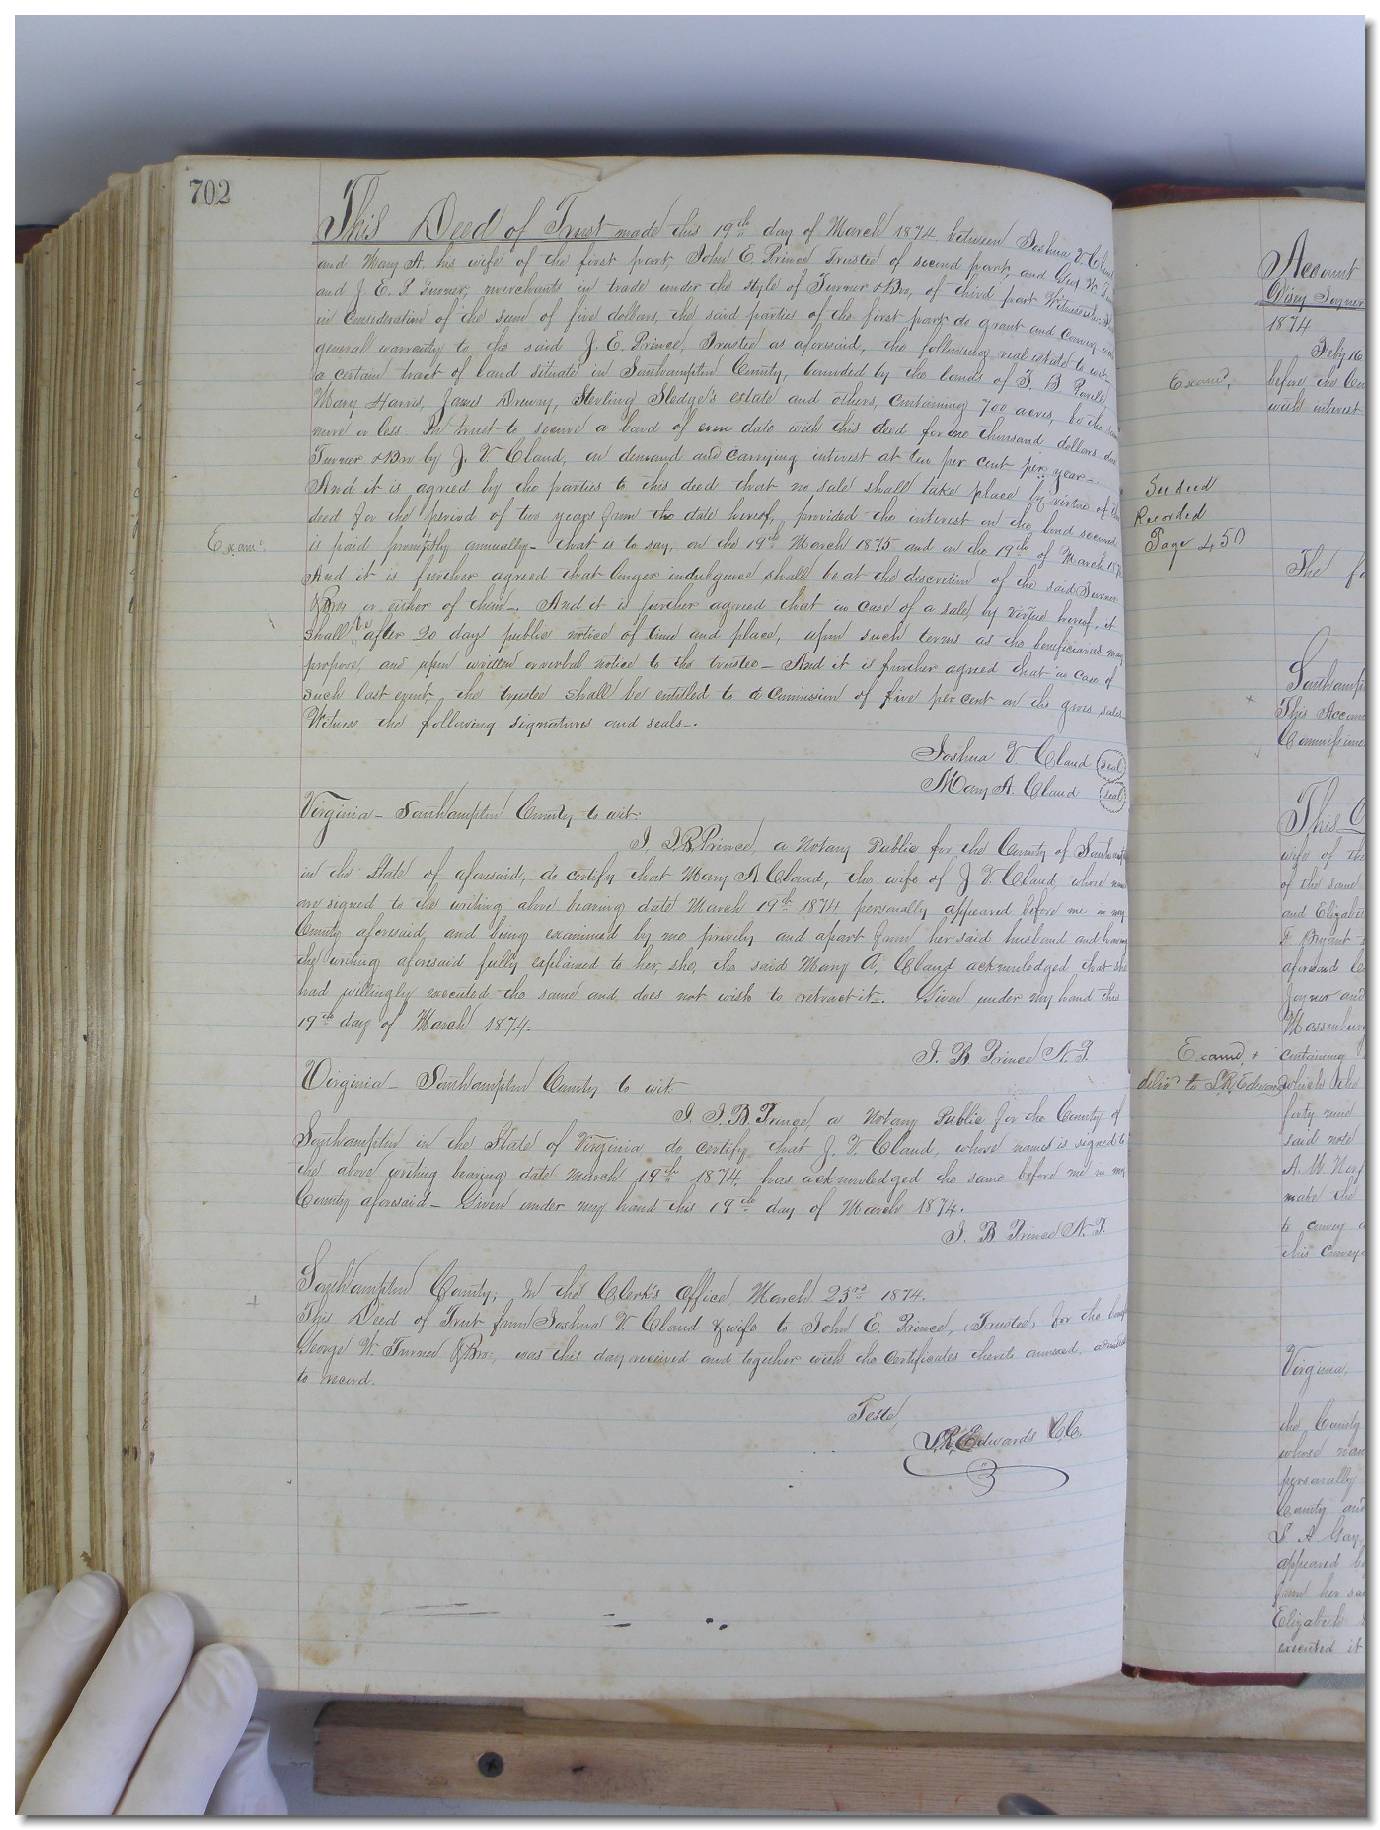 702
This Deed of Trust made this 19th day of March 1874 between Joshua V Claud
and Mary A. his wife of the first part, John E. Prince Trustee of second part, and Geo. W.
and J. E. P. Turner, merchants in trade under the style of Turner & Bro, of third part Witnesseth:
in consideration of the sum of five dollars, the said parties of the first part do grant and convey with
general warranty to the said J. E. Prince, Trustee as aforesaid, the following real estate to wit:
a certain tract of land situate in Southampton County, bounded by the lands of
Mary Harris, James Drewry, Sterling Sledge's estate and others, containing 700 acres, be the same
more or less. In trust to secure a bond of even date with this deed for one thousand dollars due
Turner & Bro by J. V. Claud, on demand and carrying interest at ten per cent per year—
And it is agreed by the parties to this deed that no sale shall take place by virtue of this
deed for the period of two years from the date hereof, provided the interest on the bond secured
Exam.
is paid promptly annually— that is to say, on the 19th March 1875 and on the 19th of March
And it is further agreed that longer indulgence shall be at the discretion of the said Turner
& Bro or either of them—. And it is further agreed that in case of a sale, by virtue hereof, it
shall be after 20 days public notice of time and place, upon such terms as the beneficiaries may
propose, and upon written or verbal notice to the trustee— And it is further agreed that in case of
such last event, the trustee shall be entitled to a commission of five per cent on the gross sales—
Witness the following signatures and seals—.
Joshua V Claud seal
Mary A. Claud seal
Virginia— Southampton County to wit:
I, J. B. Prince, a Notary Public for the County of Southampton
in the State of aforesaid, do certify that Mary A Claud, the wife of J V. Claud, whose names
are signed to the writing above bearing date March 19th 1874 personally appeared before me in my
County aforesaid, and being examined by me privily and apart from her said husband and having
the writing aforesaid fully explained to her, she, the said Mary A, Claud acknowledged that she
had willingly executed the same and does not wish to retract it—. Given under my hand this
19th day of March 1874.
J. B Prince N. P.
Virginia— Southampton County to wit.
I, J. B. Prince, a Notary Public for the County of
Southampton in the State of Virginia, do certify that J. V. Claud, whose name is signed to
the above writing bearing date March 19th 1874, has acknowledged the same before me in my
County aforesaid— Given under my hand this 19th day of March 1874.
J. B Prince N. P.
Southampton County, In the Clerk's Office, March 23rd 1874.
This Deed of Trust from Joshua V. Claud & wife to John E. Prince, (Trustee) for the benefit
George W. Turner & Bro:, was this day received and together with the certificates thereto annexed, admitted
to record.
Teste,
L. R. Edwards C. C.
Account
1874
Feby 16
Exam.
before the
with interest
See deed
Recorded
Page 450
The
Southampton
This Account
Commissioner
This
wife of the
of the same
and Elizabeth
Bryant
aforesaid
Joyner and
Massenburg
Examd +
containing
deliv to L. R. Edwards
which the
forty nine
said note
A. W.
make the
to convey
this convey
Virginia,
the County
whose name
personally
County and
appeared
from her said
Elizabeth
executed it